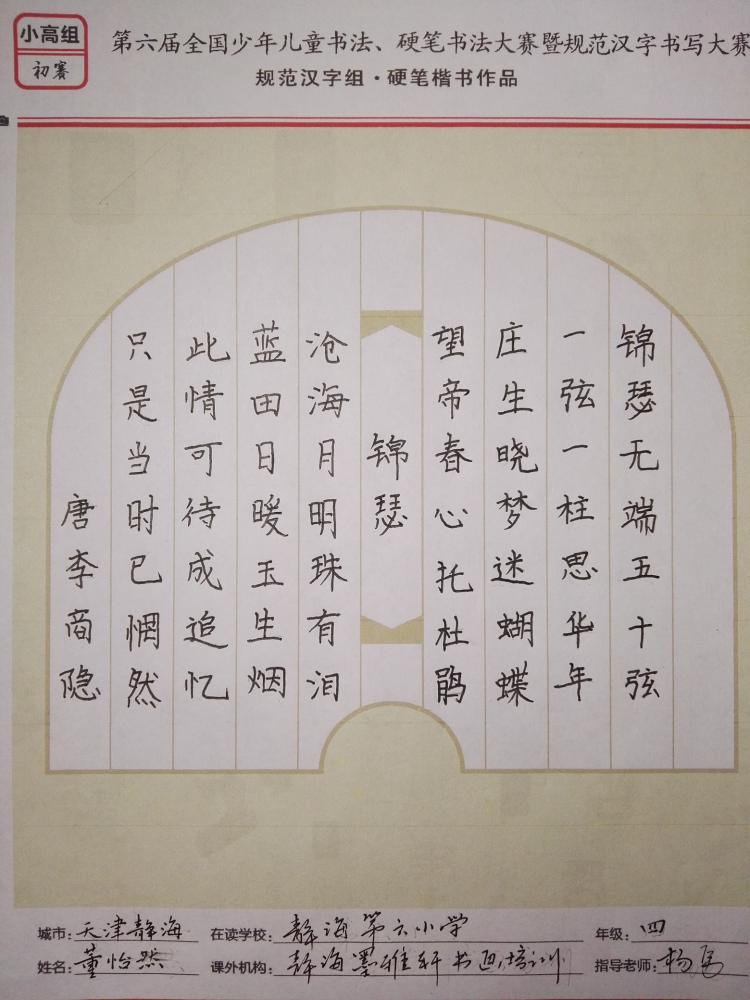 小高组
初赛
第六届全国少年儿童书法、硬笔书法大赛暨规范汉字书写大赛
规范汉字组·硬笔楷书作品
锦瑟无端五十弦
一弦一柱思华年
庄生晓梦迷蝴蝶
望帝春心托杜鹃
锦瑟
沧海月明珠有泪
蓝田日暖玉生烟
此情可待成追忆
只是当时已惘然
唐李商隐
城市:天津静海 在读学校:静海第六小学 年级:四
姓名:董怡然 课外机构:静海墨雅轩书画培训 指导老师:杨